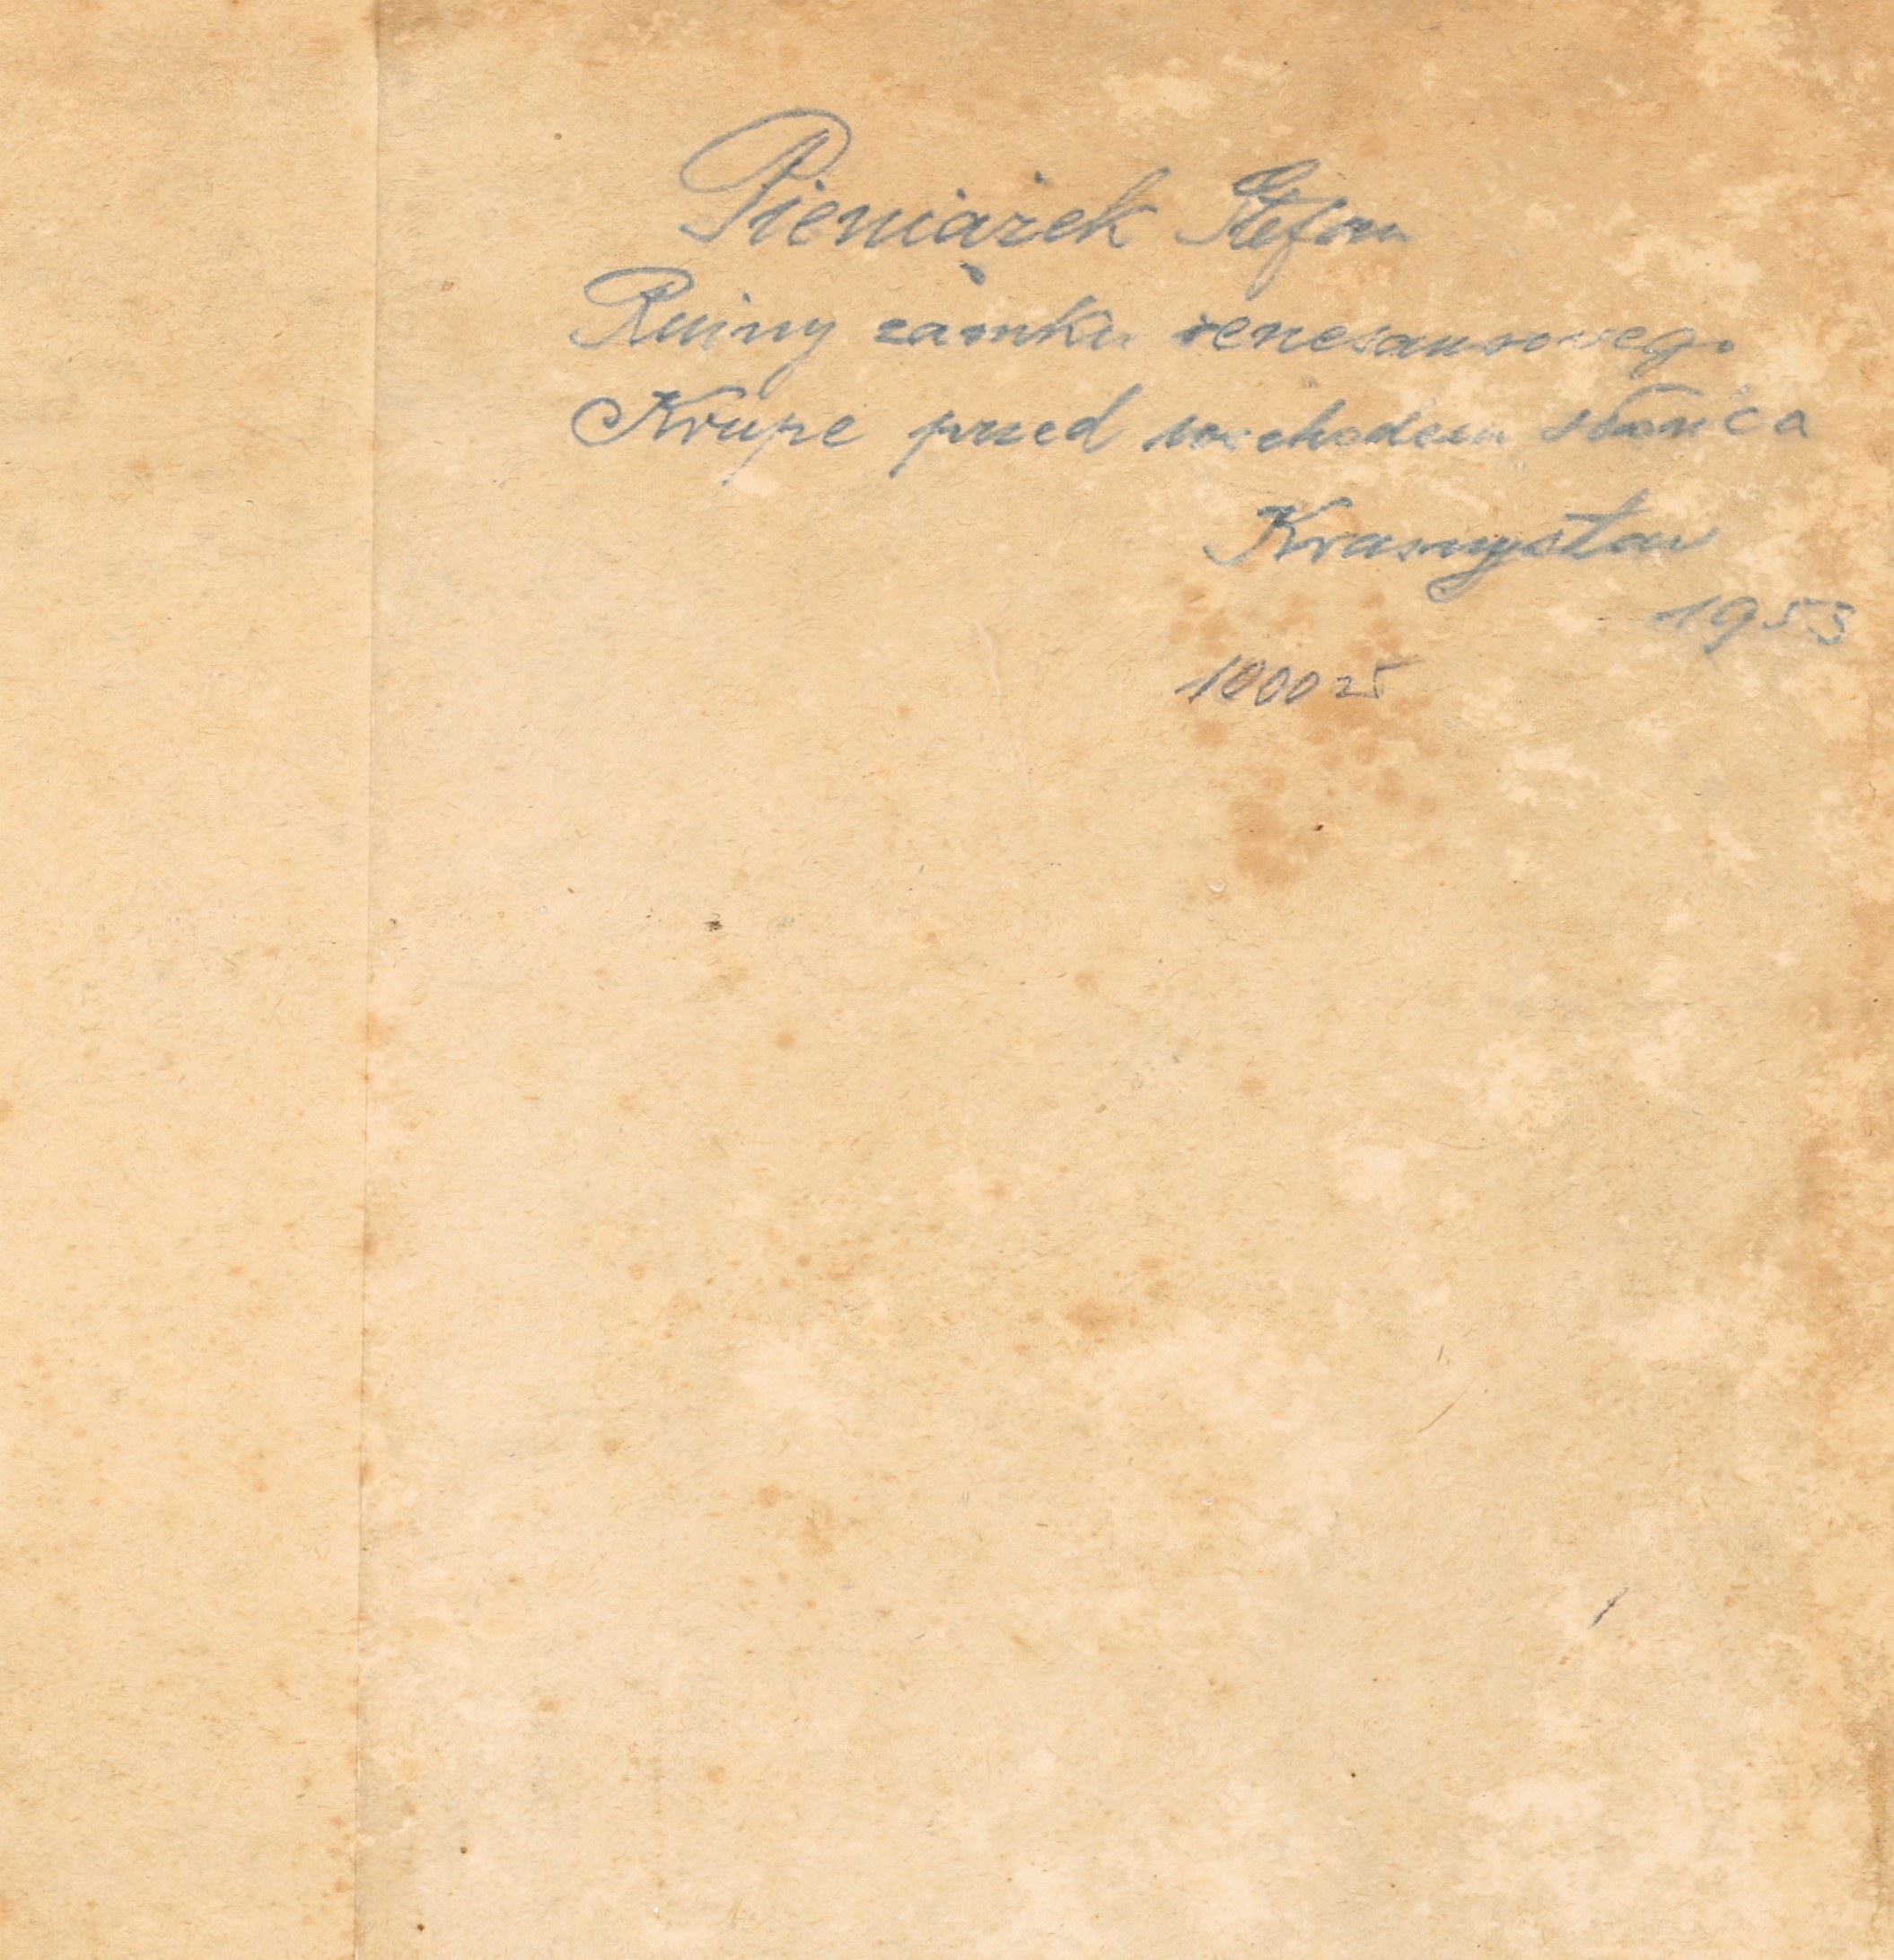 Pieniążek Stefan
Ruiny zamku renesansowego
Krupe przed wschodem słońca
Krasnystaw
1953
1000 zł